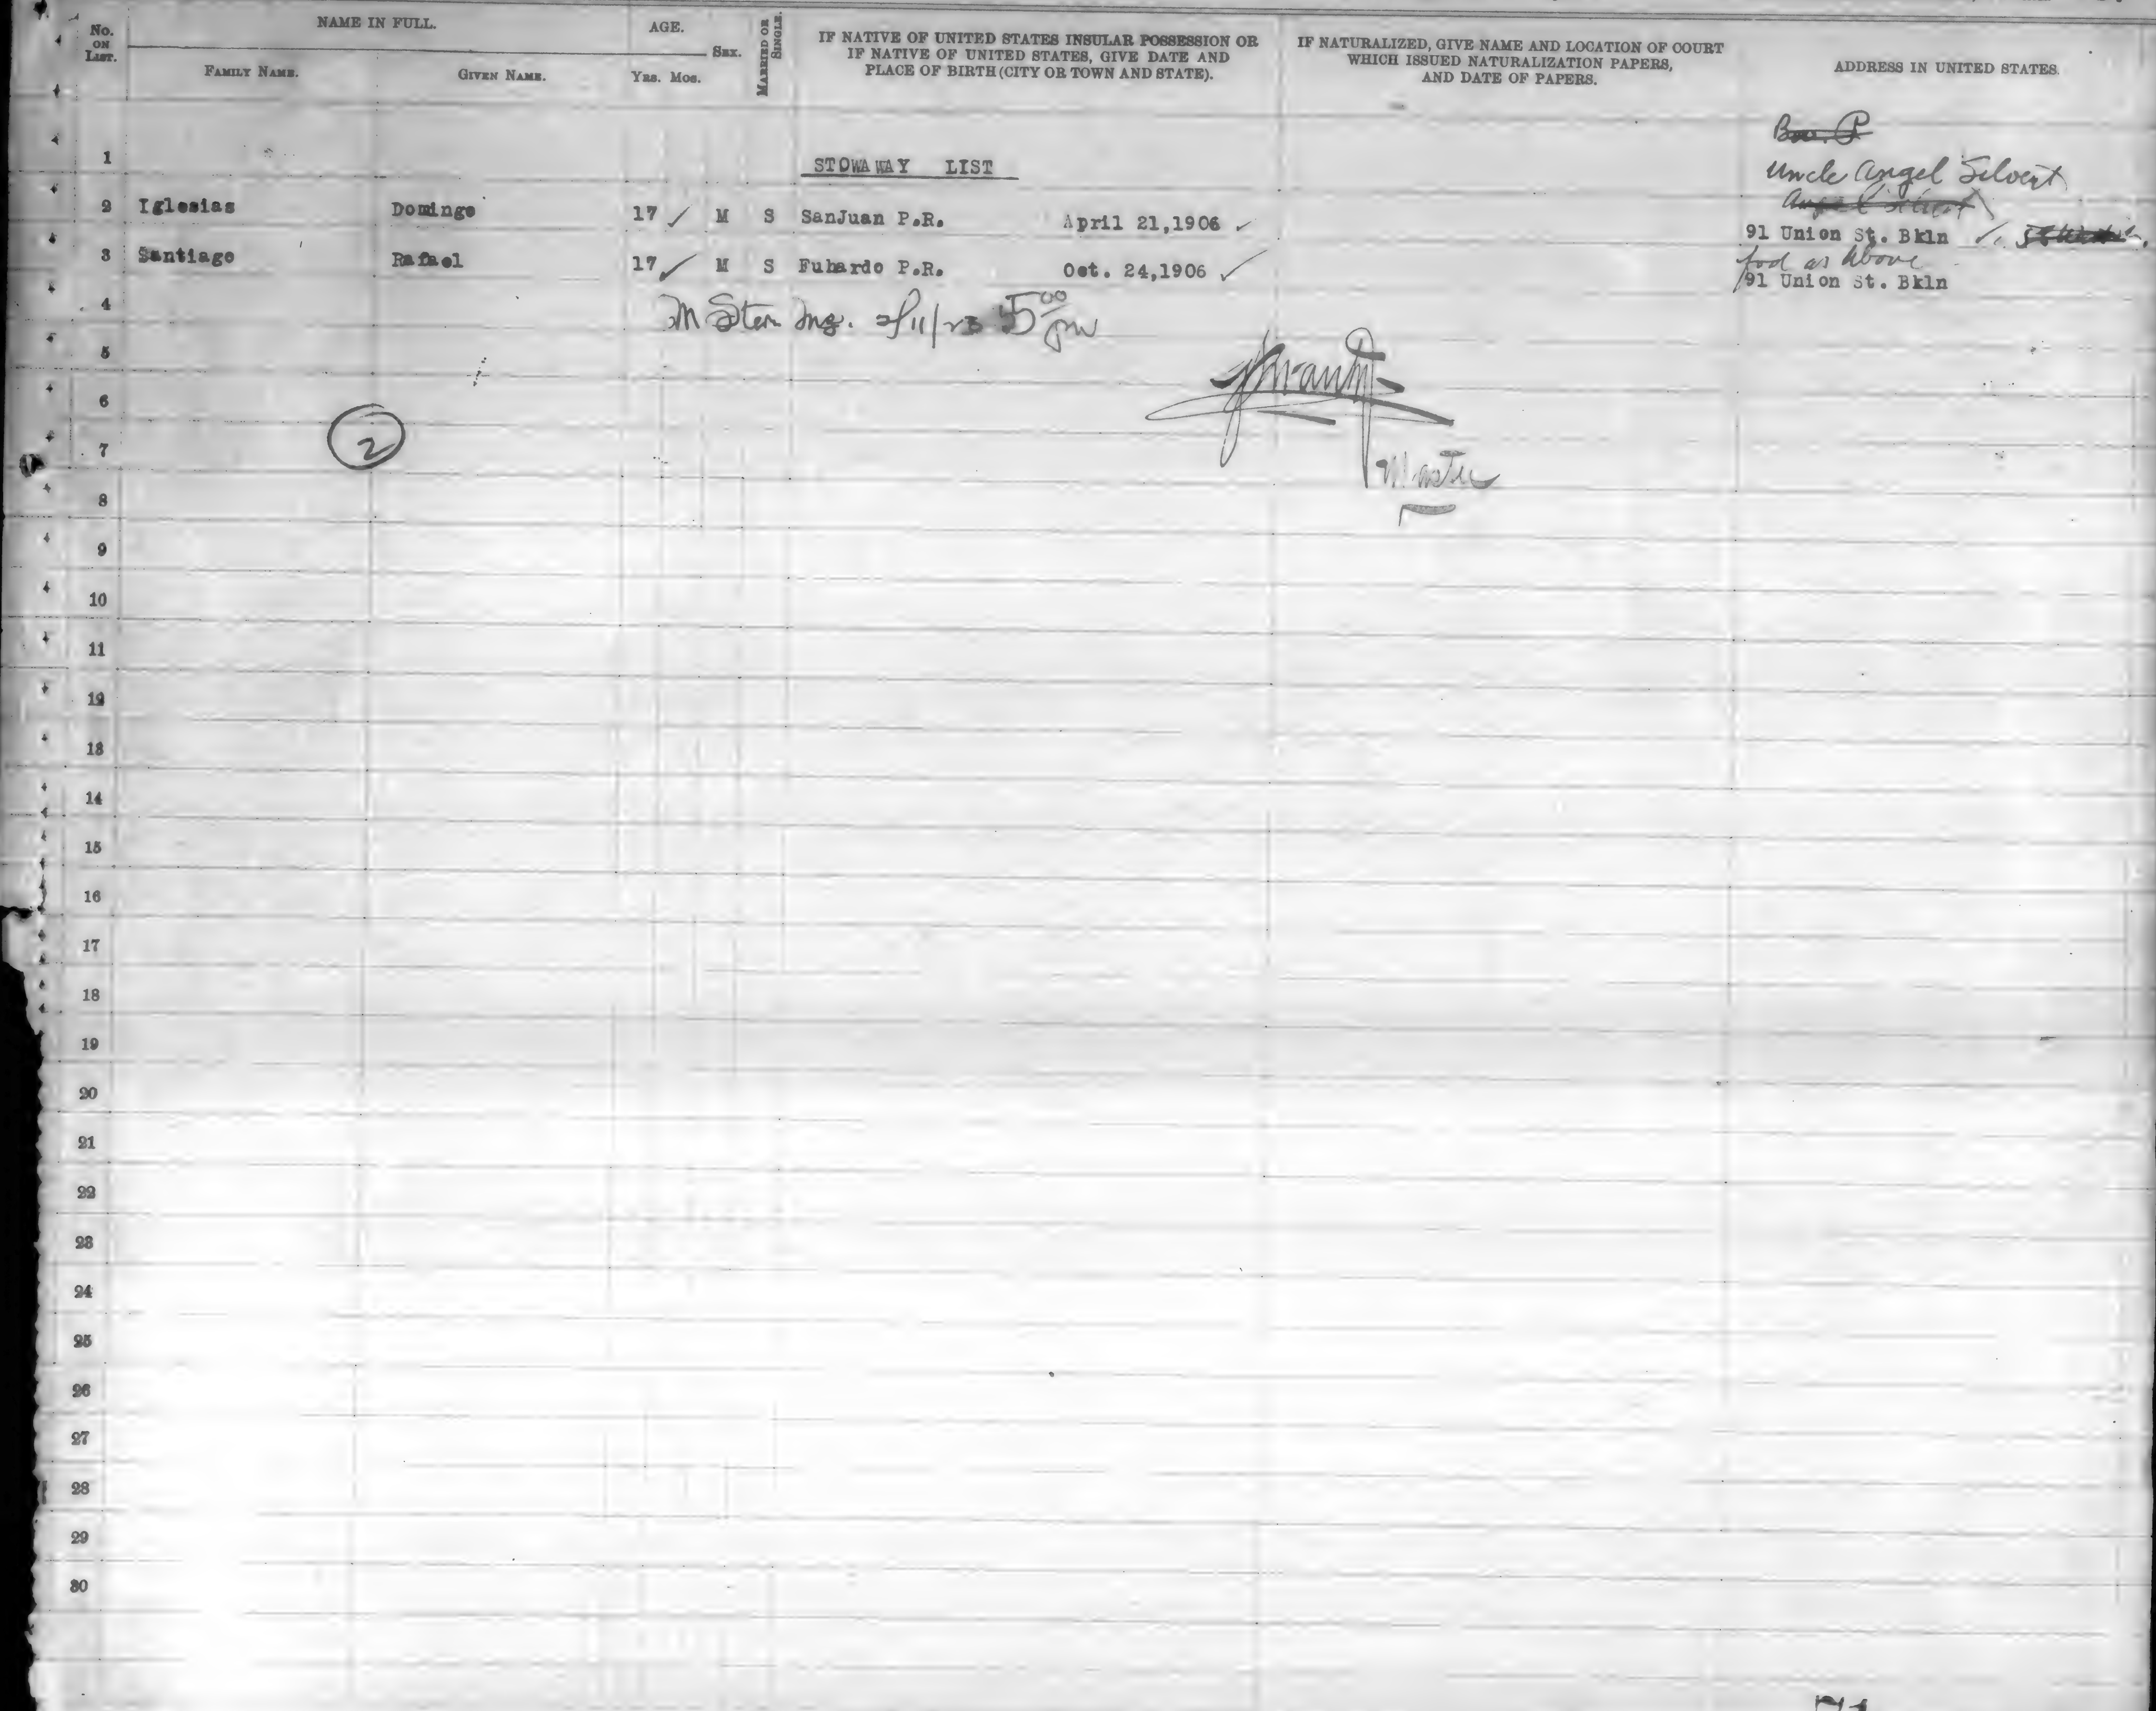 No. ON LIST.
NAME IN FULL.
FAMILY NAME.
GIVEN NAME.
AGE.
YRS. MOS.
SEX.
MARRIED OR SINGLE.
IF NATIVE OF UNITED STATES INSULAR POSSESSION OR
IF NATIVE OF UNITED STATES, GIVE DATE AND
PLACE OF BIRTH (CITY OR TOWN AND STATE).
IF NATURALIZED, GIVE NAME AND LOCATION OF COURT
WHICH ISSUED NATURALIZATION PAPERS,
AND DATE OF PAPERS.
ADDRESS IN UNITED STATES.
1 STOWAWAY LIST
Uncle Angel Silvert
2 Iglesias Domingo 17 ✓ M S SanJuan P.R. April 21,1906 ✓ 91 Union St. Bkln
as above
3 Santiago Rafael 17 ✓ M S Fuhardo P.R. Oct. 24,1906 ✓ 91 Union St. Bkln
4 M Stern 2/11/23 5 00 pm
5
6
7 2
Master
8
9
10
11
12
13
14
15
16
17
18
19
20
21
22
23
24
25
26
27
28
29
30